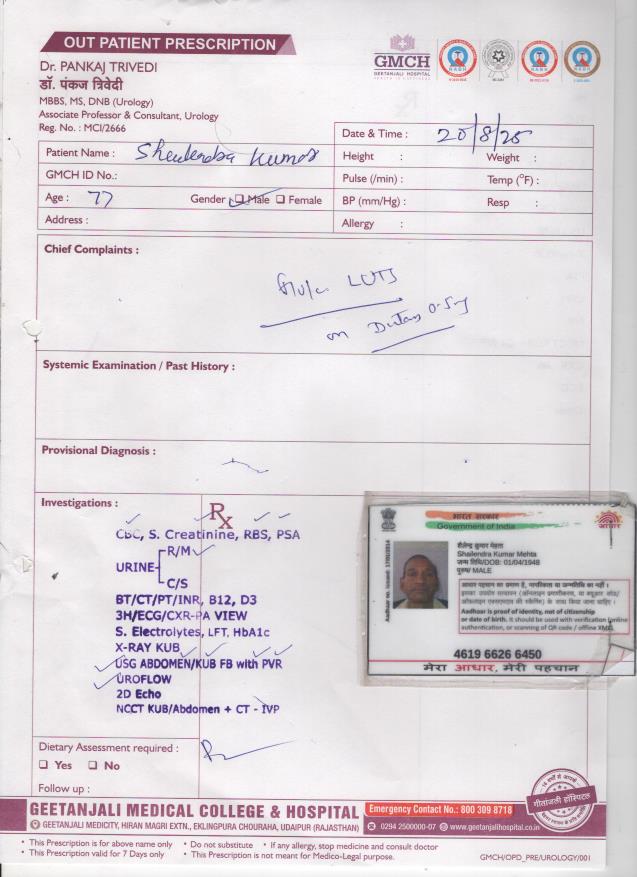 OUT PATIENT PRESCRIPTION
Dr. PANKAJ TRIVEDI
डॉ. पंकज त्रिवेदी
MBBS, MS, DNB (Urology)
Associate Professor & Consultant, Urology
Reg. No. : MCI/2666
GMCH
GEETANJALI HOSPITAL
Date & Time : 20/8/25
Patient Name : Shailendra Kumar
Height : Weight :
GMCH ID No.:
Pulse (/min) : Temp (°F) :
Age : 77 Gender ☐ Male ☐ Female
BP (mm/Hg) : Resp :
Address :
Allergy :
Chief Complaints :
LUTS
on 0.5mg
Systemic Examination / Past History :
Provisional Diagnosis :
Investigations :
Rx
CBC, S. Creatinine, RBS, PSA
URINE
R/M
C/S
BT/CT/PT/INR, B12, D3
3H/ECG/CXR-PA VIEW
S. Electrolytes, LFT, HbA1c
X-RAY KUB
USG ABDOMEN/KUB FB with PVR
UROFLOW
2D Echo
NCCT KUB/Abdomen + CT - IVP
भारत सरकार
Government of India
आधार
Aadhaar no. issued: 17/01/2014
शैलेन्द्र कुमार मेहता
Shailendra Kumar Mehta
जन्म तिथि/DOB: 01/04/1948
पुरुष/ MALE
आधार पहचान का प्रमाण है, नागरिकता या जन्मतिथि का नहीं।
Aadhaar is proof of identity, not of citizenship
or date of birth. It should be used with verification (online
authentication, or scanning of QR code / offline XML).
4619 6626 6450
मेरा आधार, मेरी पहचान
Dietary Assessment required :
☐ Yes ☐ No
Follow up :
GEETANJALI MEDICAL COLLEGE & HOSPITAL
GEETANJALI MEDICITY, HIRAN MAGRI EXTN., EKLINGPURA CHOURAHA, UDAIPUR (RAJASTHAN)
Emergency Contact No.: 800 309 8718
0294 2500000-07 www.geetanjalihospital.co.in
गीतांजली हॉस्पिटल
• This Prescription is for above name only • Do not substitute • If any allergy, stop medicine and consult doctor
• This Prescription valid for 7 Days only • This Prescription is not meant for Medico-Legal purpose.
GMCH/OPD_PRE/UROLOGY/001